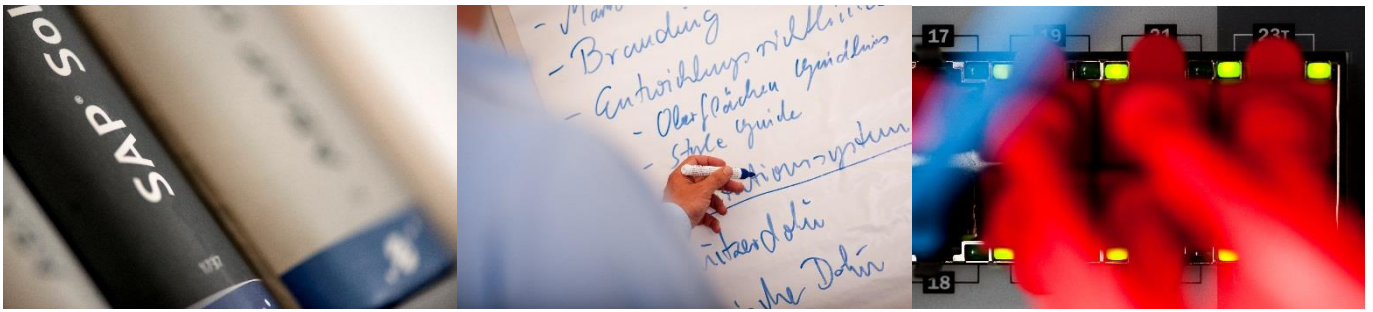 SAP® Sol
1737
- Branding
- Entwicklungsrichtlinien
- Oberflächen Guidelines
- Style Guide
ationssystem
utzerdoku
sche Doku
17 19 21 23
18